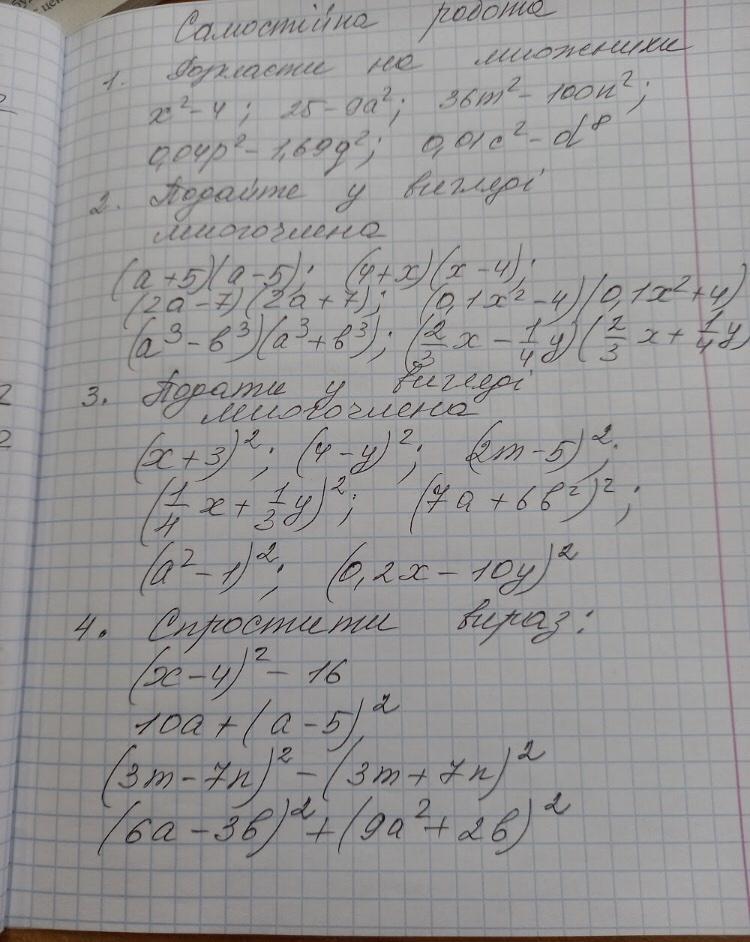 Самостійна робота
1. Розкласти на множники
x² - 4; 25 - 9a²; 36m² - 100n²;
0,04p² - 1,69q²; 0,01c² - d⁸
2. Подайте у вигляді
многочлена
(a + 5)(a - 5); (4 + x)(x - 4);
(2a - 7)(2a + 7); (0,1x² - 4)(0,1x² + 4)
(a³ - b³)(a³ + b³); (2/3 x - 1/4 y)(2/3 x + 1/4 y)
3. Подати у вигляді
многочлена
(x + 3)²; (4 - y)²; (2m - 5)²;
(1/4 x + 1/3 y)²; (7a + 6b²)²;
(a² - 1)²; (0,2x - 10y)²
4. Спростити вираз:
(x - 4)² - 16
10a + (a - 5)²
(3m - 7n)² - (3m + 7n)²
(6a - 3b)² + (9a² + 2b)²